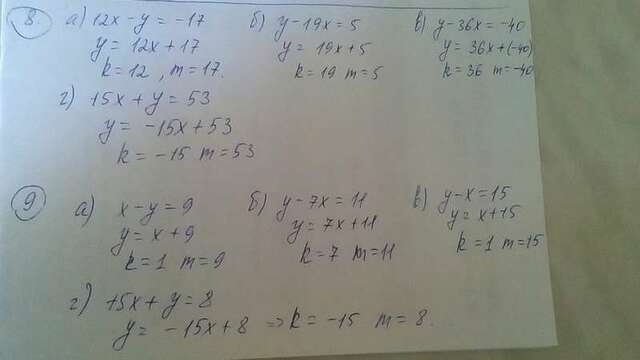 8 а) 12x - y = -17 б) y - 19x = 5 в) y - 36x = -40
y = 12x + 17 y = 19x + 5 y = 36x + (-40)
k = 12, m = 17. k = 19 m = 5 k = 36 m = -40
г) 15x + y = 53
y = -15x + 53
k = -15 m = 53
9 а) x - y = 9 б) y - 7x = 11 в) y - x = 15
y = x + 9 y = 7x + 11 y = x + 15
k = 1 m = 9 k = 7 m = 11 k = 1 m = 15
г) 15x + y = 8
y = -15x + 8 => k = -15 m = 8.